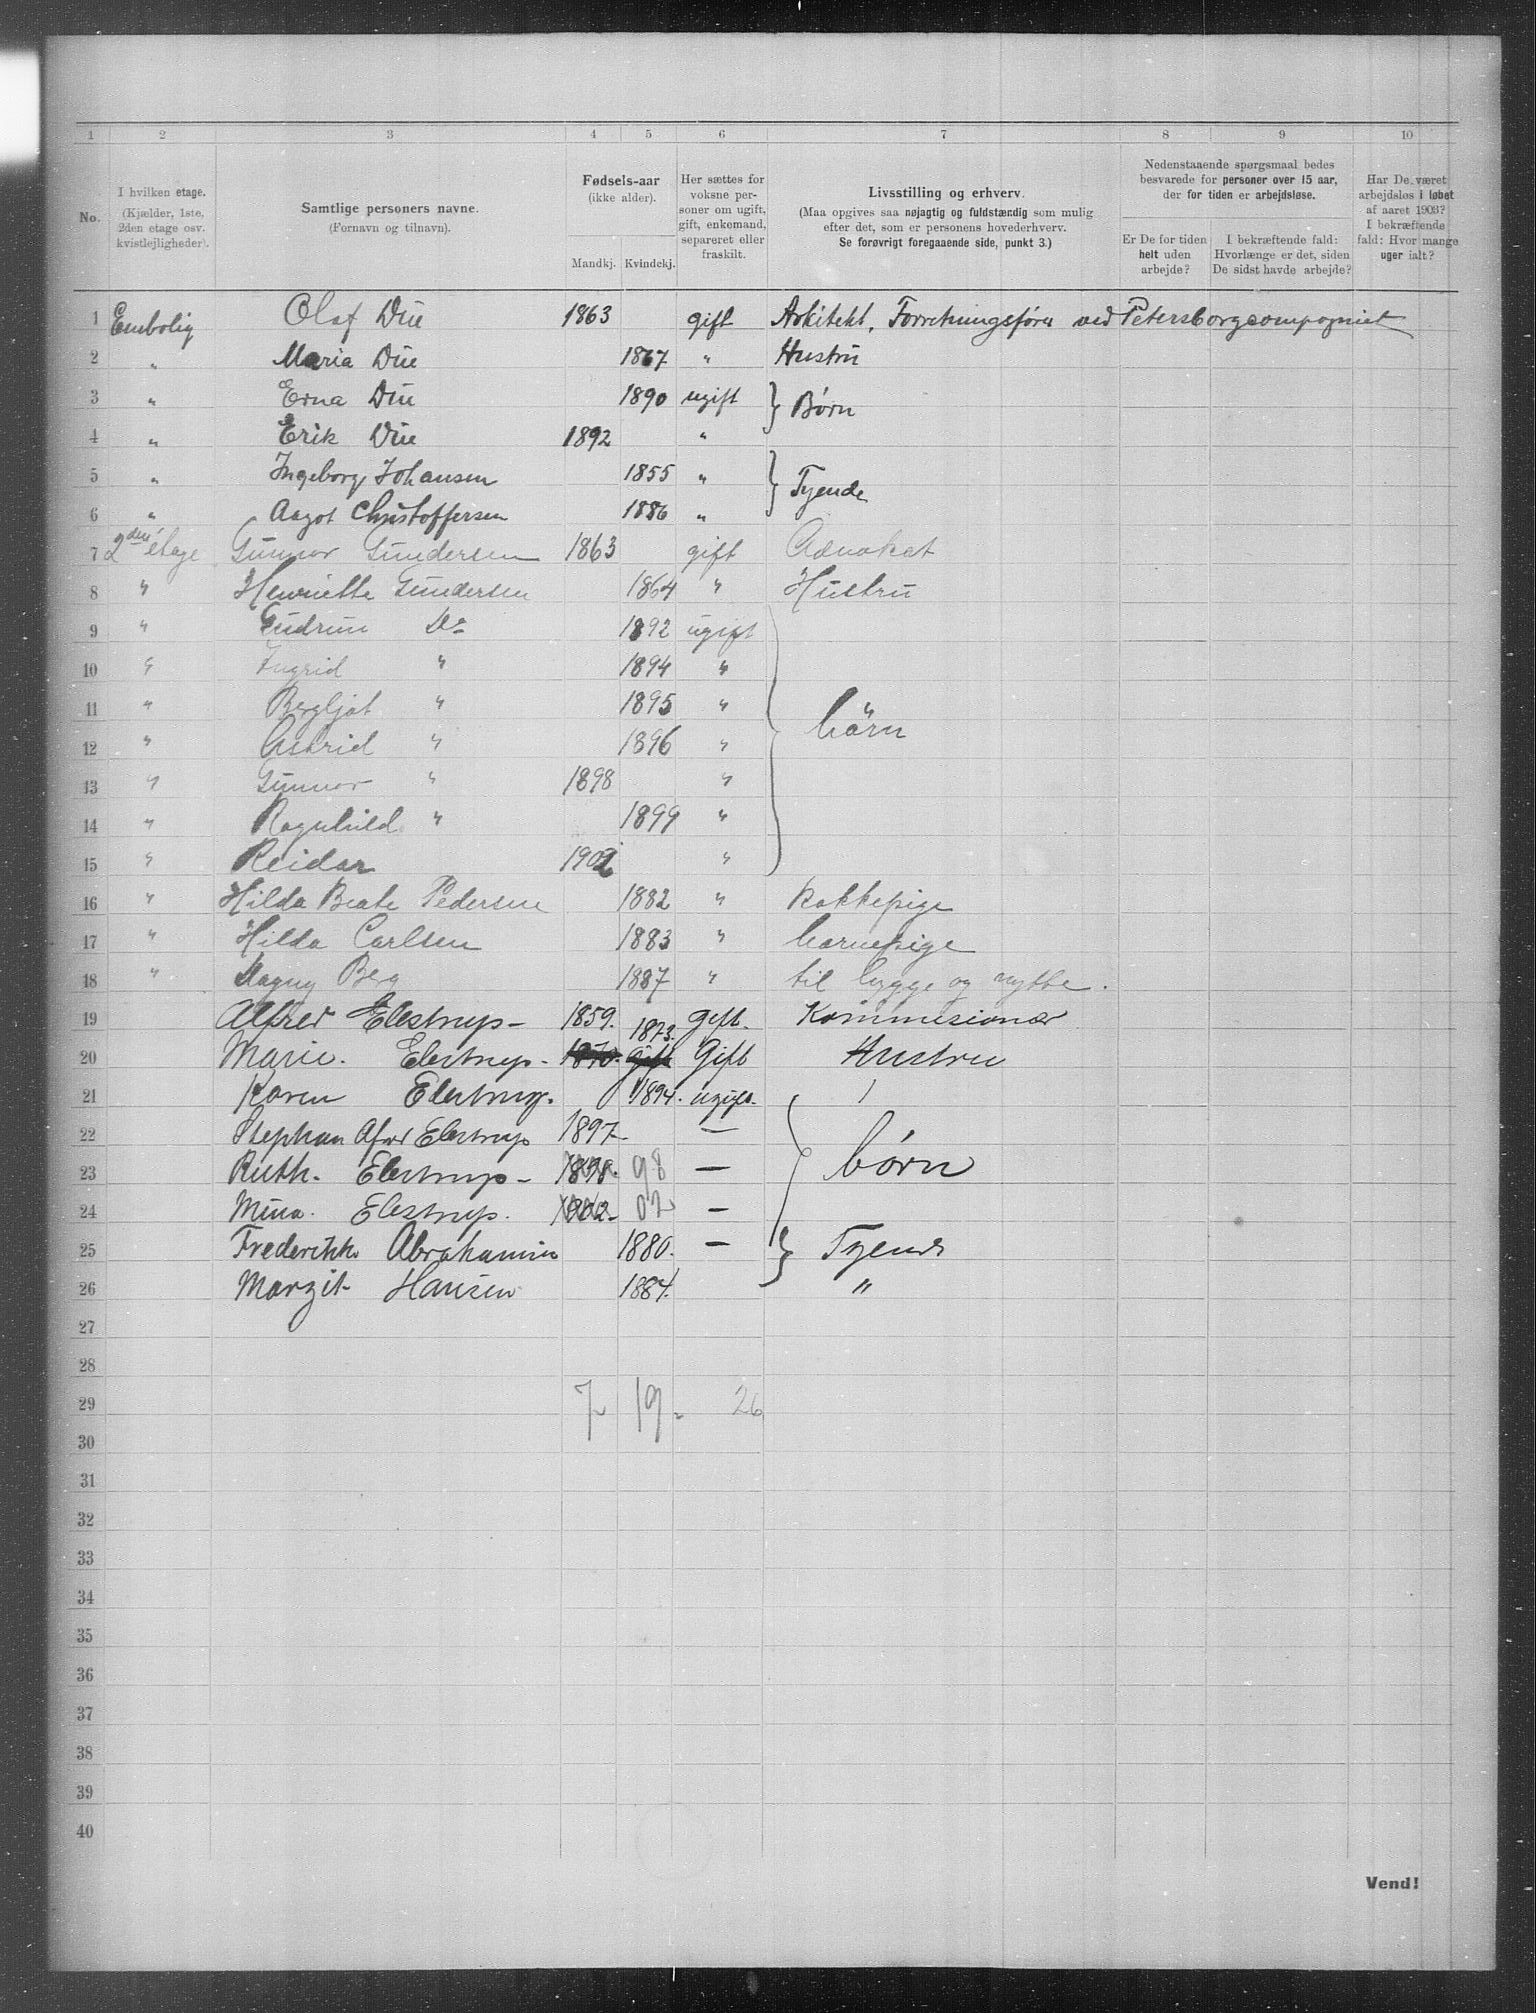 1 2 3 4 5 6 7 8 9 10
No.
I hvilken etage.
(Kjælder, 1ste,
2den etage osv.
kvistlejligheder).
Samtlige personers navne.
(Fornavn og tilnavn).
Fødsels-aar
(ikke alder).
Mandkj. Kvindekj.
Her sættes for
voksne per-
soner om ugift,
gift, enkemand,
separeret eller
fraskilt.
Livsstilling og erhverv.
(Maa opgives saa nøjagtig og fuldstændig som mulig
efter det, som er personens hovederhverv.
Se forøvrigt foregaaende side, punkt 3.)
Nedenstaaende spørgsmaal bedes
besvarede for personer over 15 aar,
der for tiden er arbejdsløse.
Er De for tiden
helt uden
arbejde?
I bekræftende fald:
Hvorlænge er det, siden
De sidst havde arbejde?
Har De været
arbejdsløs i løbet
af aaret 1903?
I bekræftende
fald: Hvor mange
uger ialt?
1 Enebolig Olaf Due 1863 gift Arkitekt, Forretningsfører ved Petersborgcompagniet
2 " Maria Due 1867 " Hustru
3 " Erna Due 1890 ugift } Børn
4 " Erik Due 1892 "
5 " Ingeborg Johansen 1855 " } Tyende
6 " Aagot Christoffersen 1886 "
7 2den etage Gunnar Gundersen 1863 gift Advokat
8 " Henriette Gundersen 1864 " Hustru
9 " Gudrun Do 1892 ugift
10 " Ingrid " 1894 "
11 " Bergljot " 1895 " } börn
12 " Astrid " 1896 "
13 " Gunnar " 1898 "
14 " Ragnhild " 1899 "
15 " Reidar 1902 "
16 " Hilda Beate Pedersen 1882 " Kokkepige
17 " Hilda Carlsen 1883 " barnepige
18 " Magny Berg 1887 " til hygge og nytte.
19 Alfred Elestrup - 1859. Gift. Kommesionær
20 Marie. Elestrup - 1870. gift 1873. Gift Hustru
21 Karen Elestrup. 1894. ugift.
22 Stephan Elestrup 1897 - —
23 Ruth. Elestrup - 1898. 98 — } børn
24 Mina. Elestrup. 1902 - 02 —
25 Frederikke Abrahamsen 1880. — } Tyende
26 Margit Hansen 1884. "
27
28
29 7 19 - 26
30
31
32
33
34
35
36
37
38
39
40
Vend!